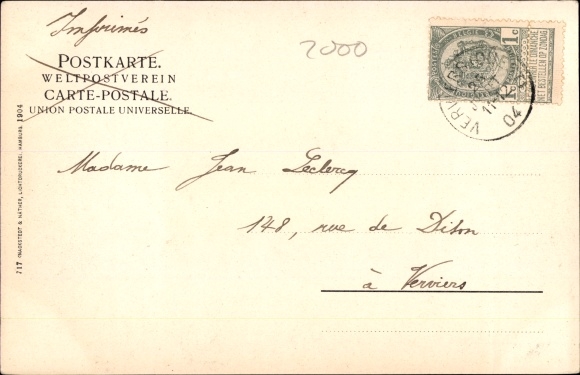 Imprimés
2000
POSTKARTE.
WELTPOSTVEREIN
CARTE-POSTALE.
UNION POSTALE UNIVERSELLE.
1c
1c
VERVIERS
11
04
Madame Jean Leclercq
148, rue de Dison
à Verviers
717 KNACKSTEDT & NÄTHER, LICHTDRUCKEREI, HAMBURG 1904